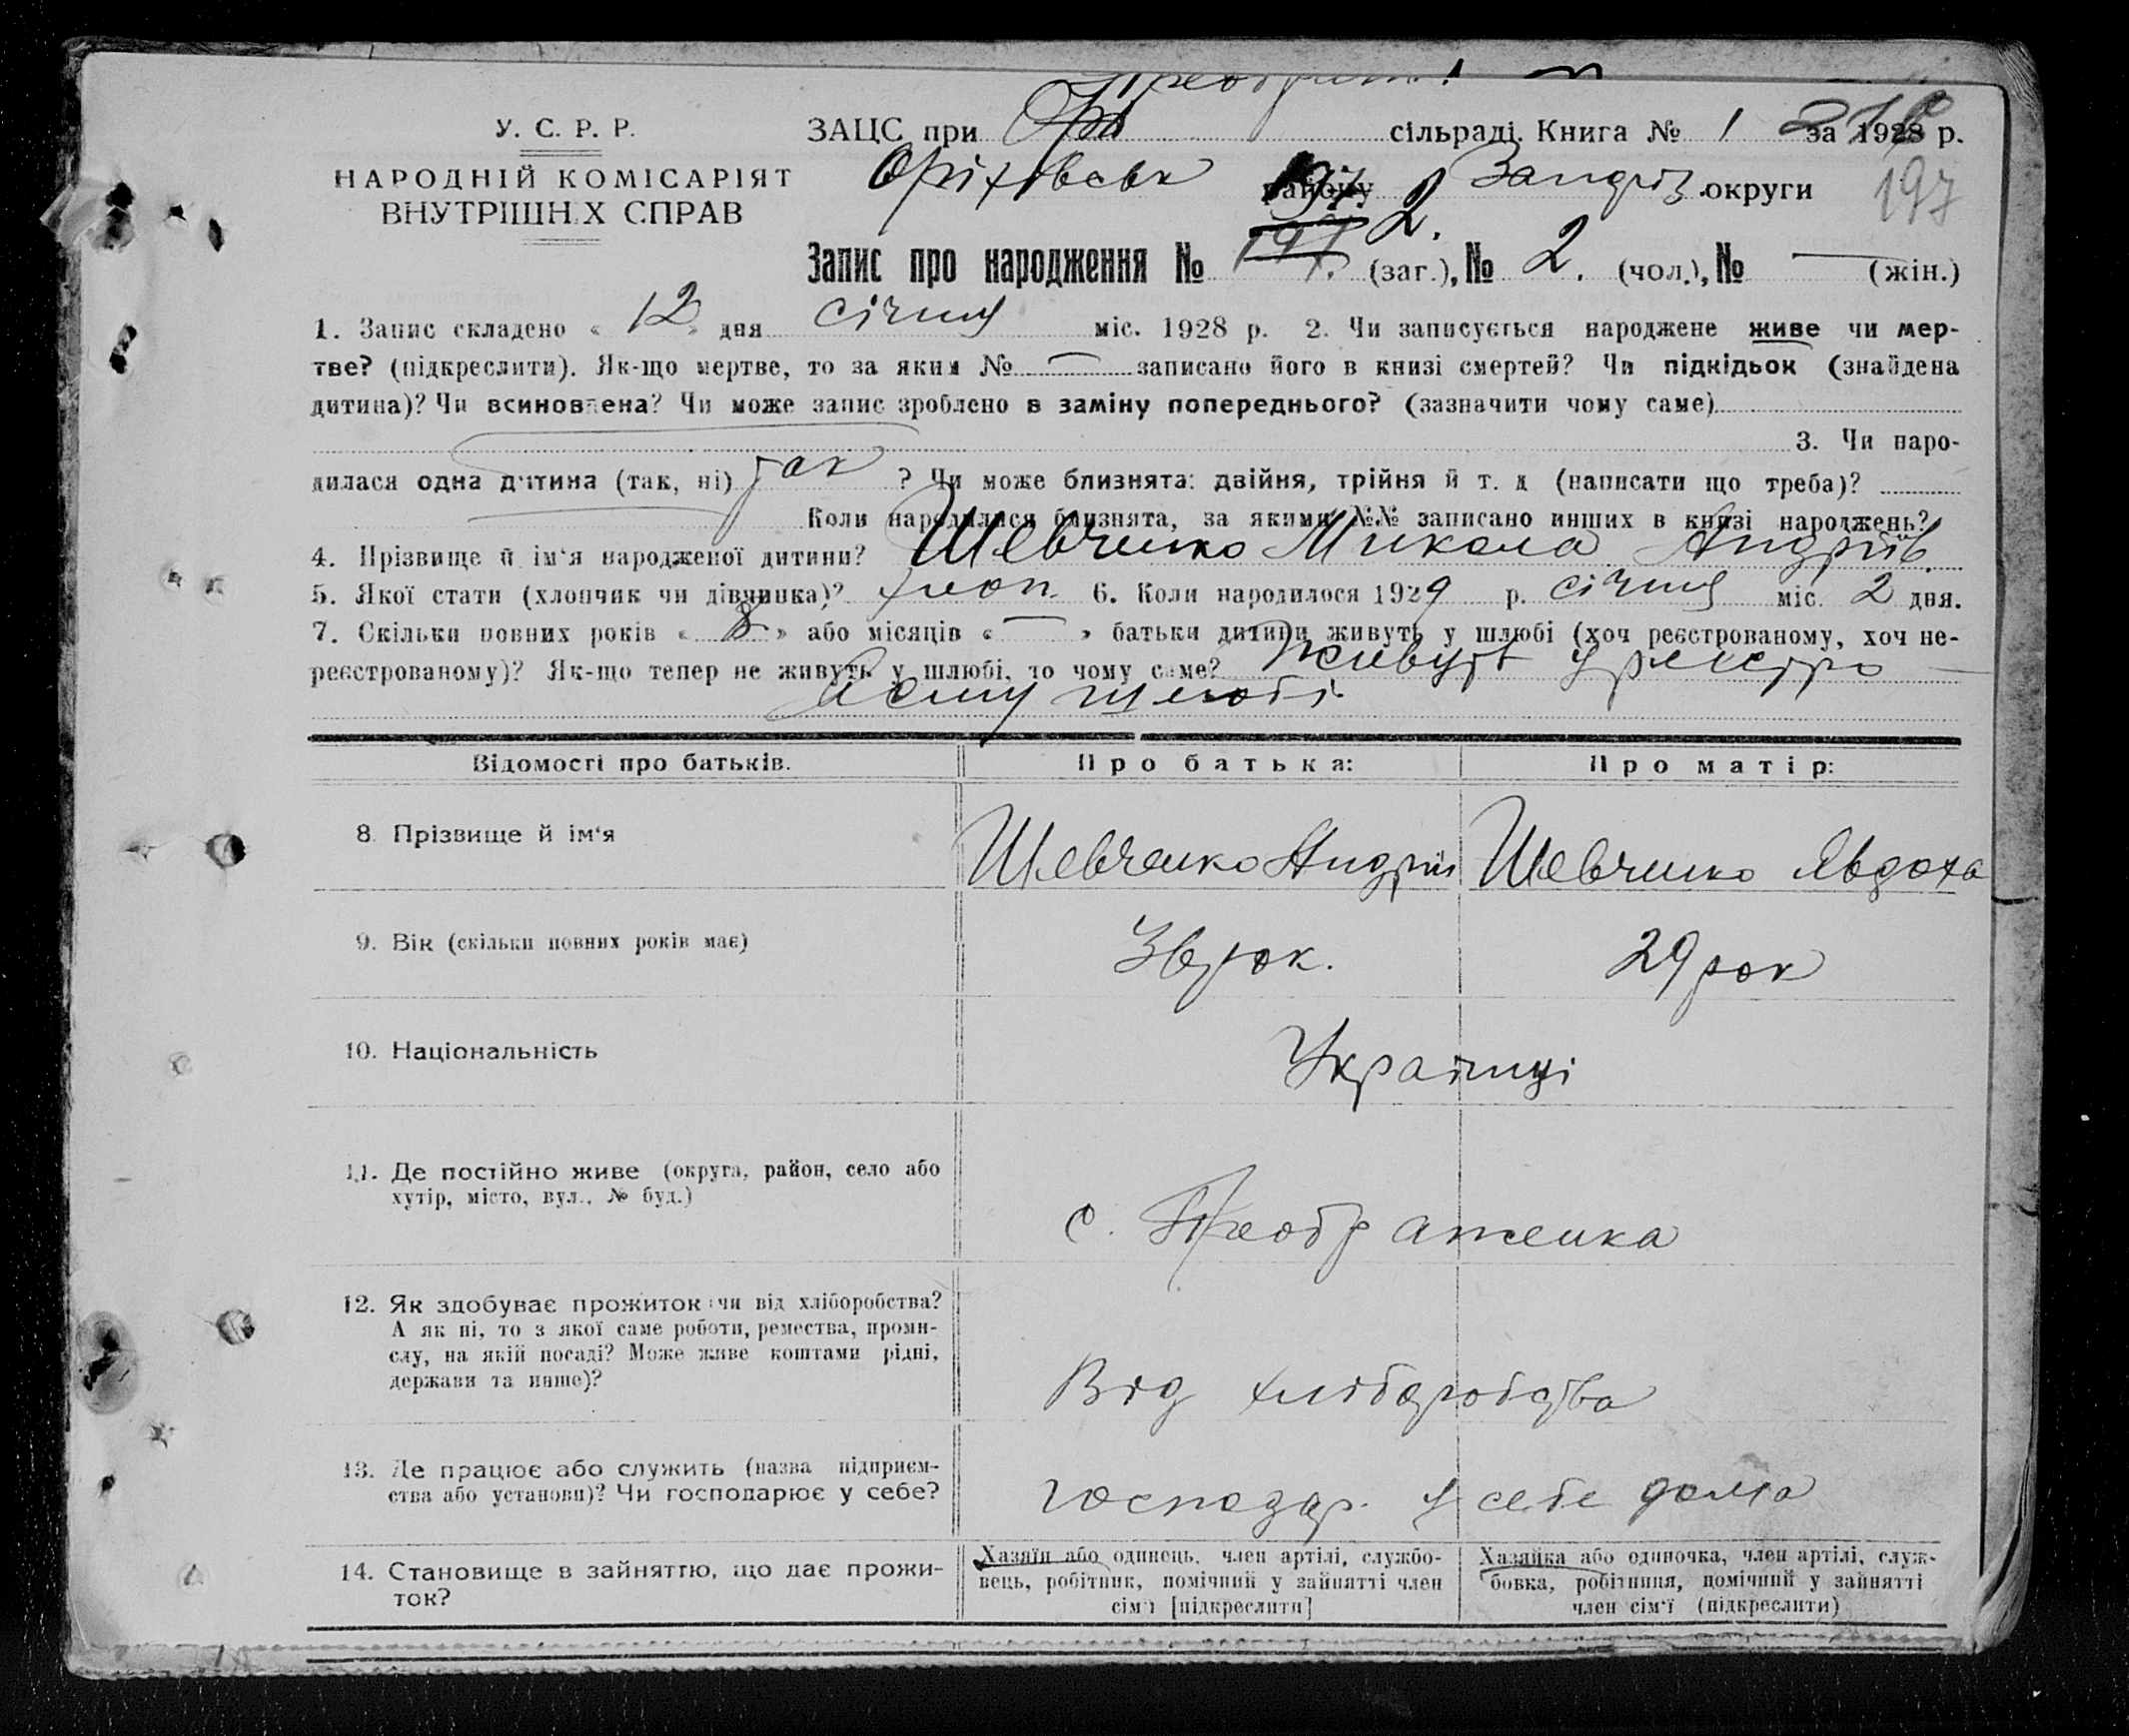 У. С. Р. Р.
НАРОДНІЙ КОМІСАРІЯТ
ВНУТРІШНІХ СПРАВ
ЗАЦС при сільраді. Книга № 1 за 1928 р.
Оріхівськ району Запоріз. округи
197
Запис про народження № 197. 2. (заг.), № 2. (чол.), № — (жін.)
1. Запис складено « 12 » дня січня міс. 1928 р. 2. Чи записується народжене живе чи мер-
тве? (підкреслити). Як-що мертве, то за яким № — записано його в книзі смертей? Чи підкідьок (знайдена
дитина)? Чи всиновлена? Чи може запис зроблено в заміну попереднього? (зазначити чому саме)
3. Чи наро-
дилася одна дитина (так, ні) так ? Чи може близнята: двійня, трійня й т. д (написати що треба)?
Коли народилися близнята, за якими №№ записано инших в книзі народжень?
4. Прізвище й ім‘я народженої дитини? Шевченко Микола Андріїв.
5. Якої стати (хлопчик чи дівчинка)? хлоп. 6. Коли народилося 1929 р. січня міс. 2 дня.
7. Скільки повних років « 8 » або місяців « — » батьки дитини живуть у шлюбі (хоч реєстрованому, хоч не-
реєстрованому)? Як-що тепер не живуть у шлюбі, то чому саме? Живуть у реєстро
ваному шлюбі
Відомості про батьків. Про батька: Про матір:
8. Прізвище й ім‘я Шевченко Андрій Шевченко Явдоха
9. Вік (скільки повних років має) 36 рок. 29 рок
10. Національність Українці
11. Де постійно живе (округа, район, село або
хутір, місто, вул., № буд.)
с. Преображенка
12. Як здобуває прожиток: чи від хліборобства?
А як ні, то з якої саме роботи, ремества, проми-
слу, на якій посаді? Може живе коштами рідні,
держави та инше)?
Від хліборобства
13. Де працює або служить (назва підприєм-
ства або установи)? Чи господарює у себе?
господар. у себе дома
14. Становище в зайняттю, що дає прожи-
ток?
Хазяїн або одинець, член артілі, службо-
вець, робітник, помічний у зайнятті член
сім‘ї [підкреслити]
Хазяйка або одиночка, член артілі, служ-
бовка, робітниця, помічний у зайнятті
член сім‘ї (підкреслити)